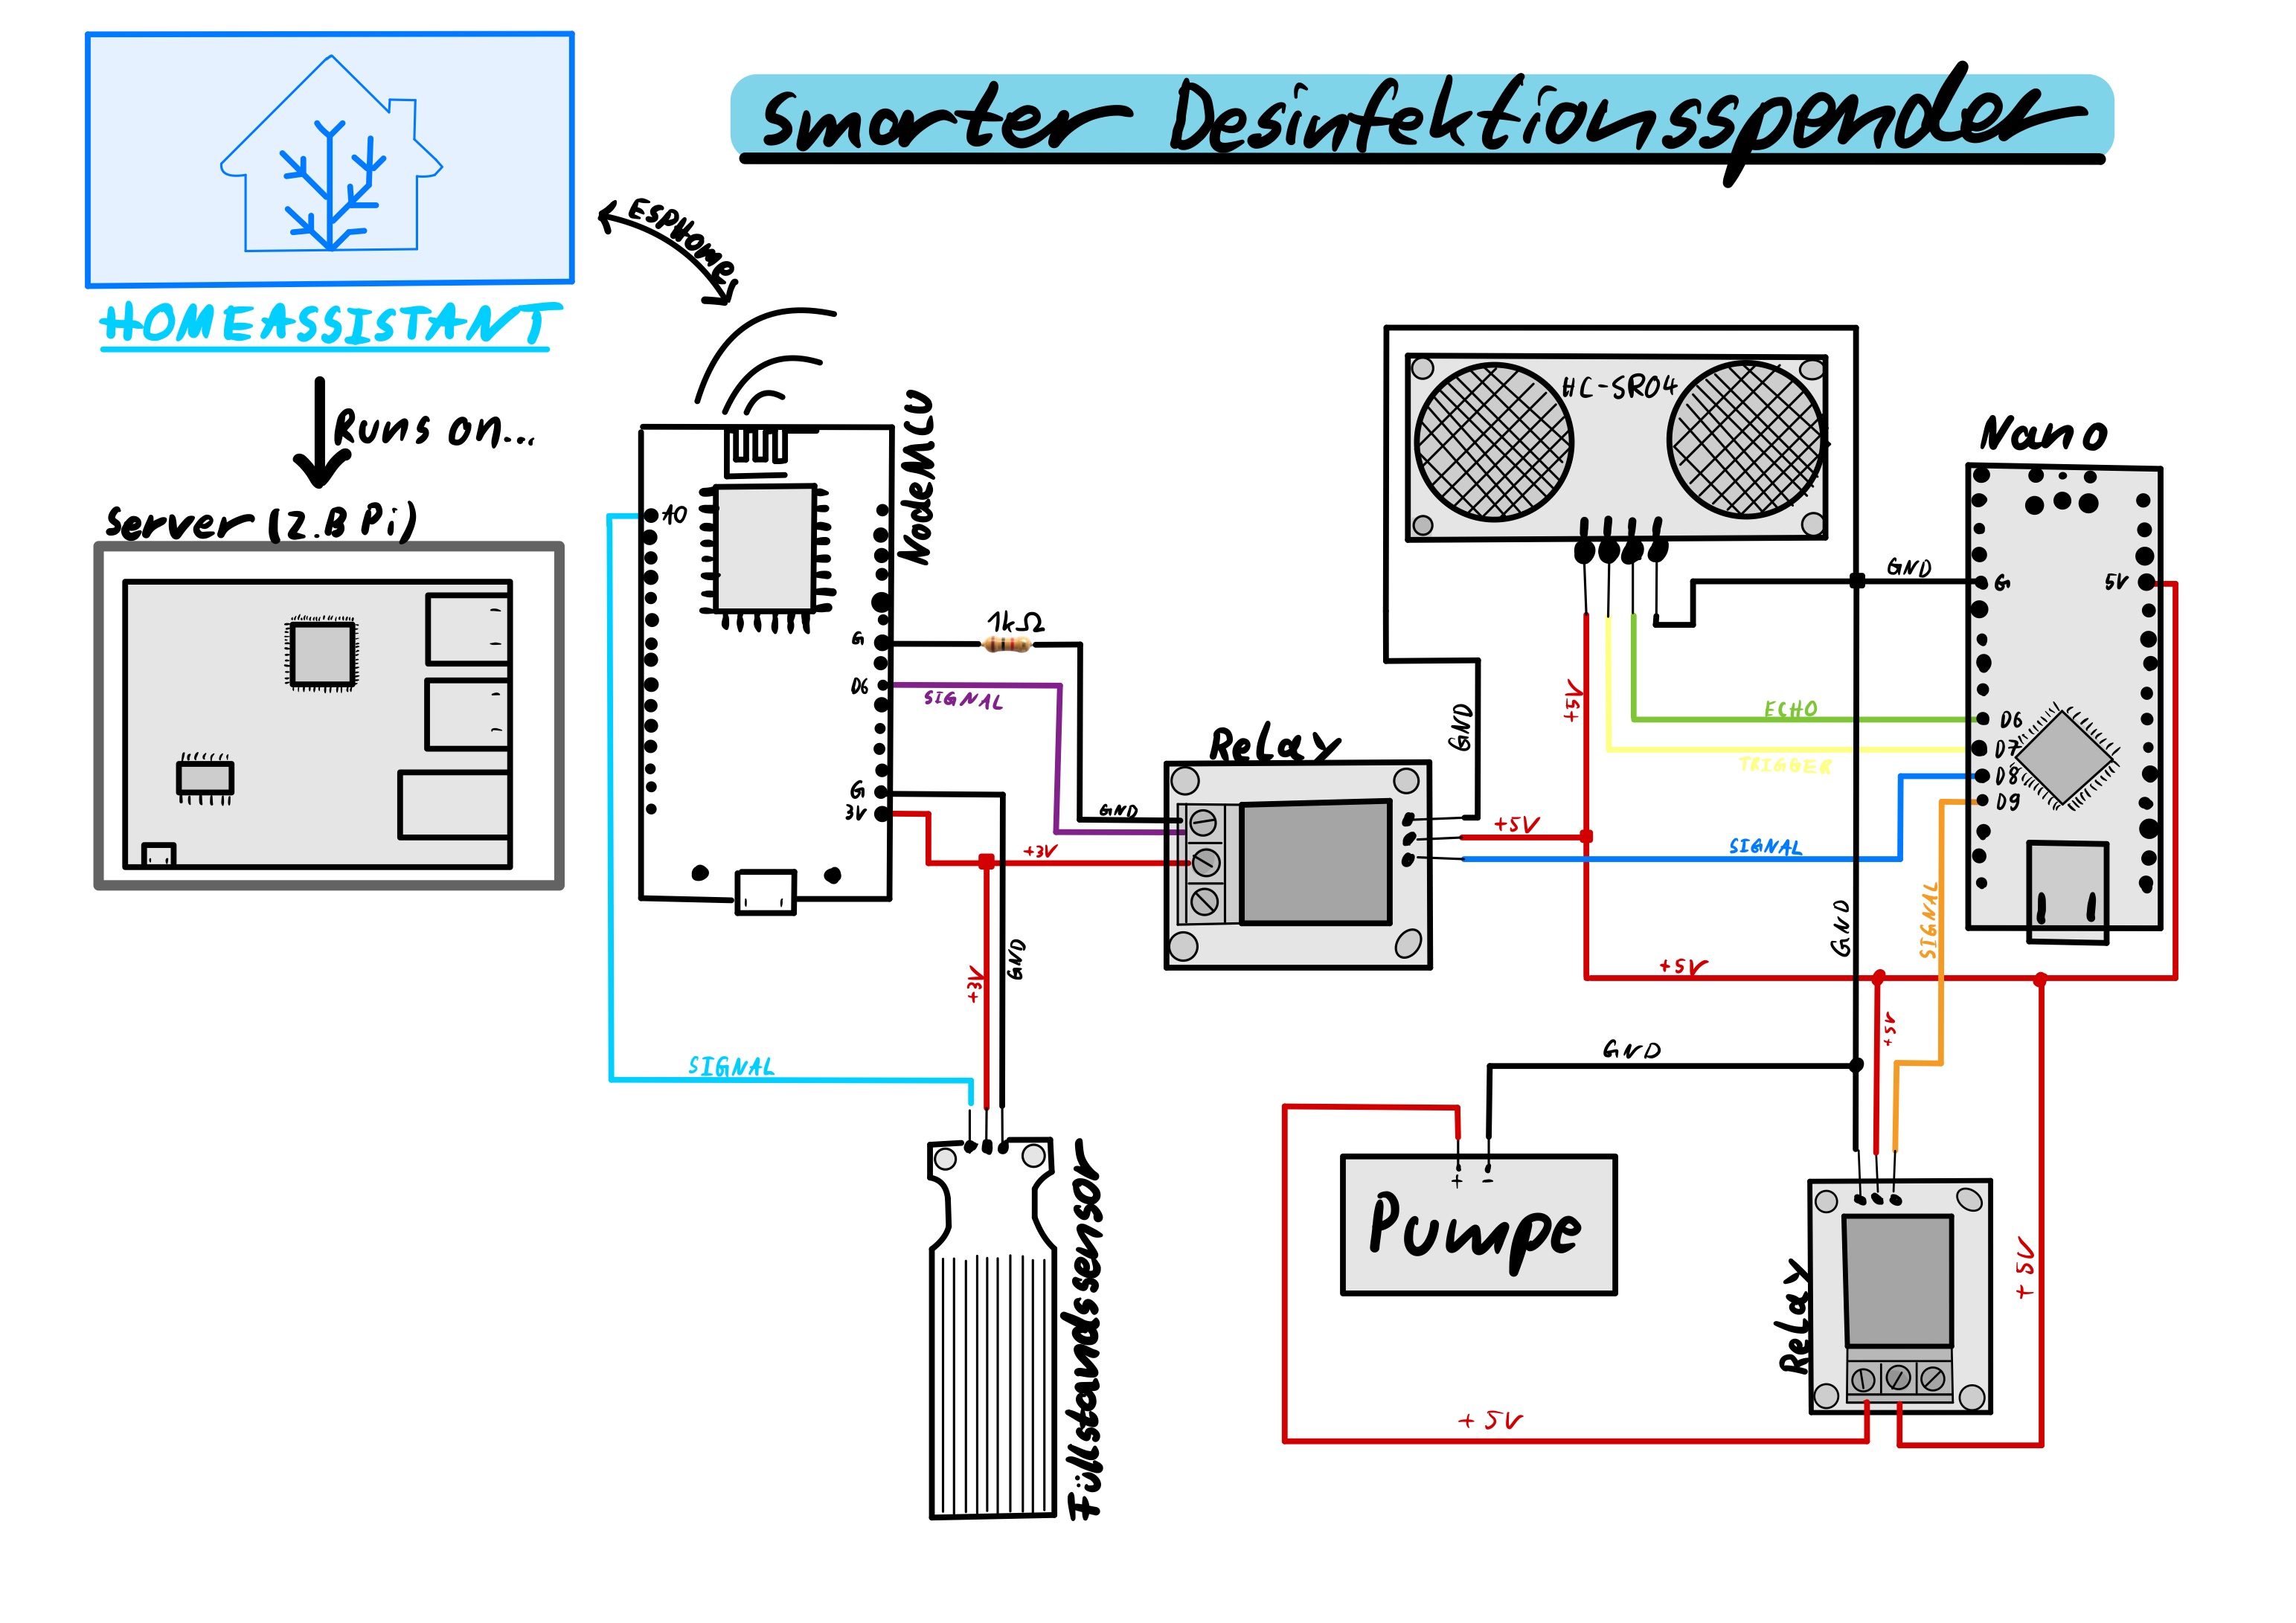 Smarter Desinfektionsspender
ESPHome
HOMEASSISTANT
Runs on...
Server (z.B Pi)
NodeMCU
A0
G
D6
G
3V
1kΩ
SIGNAL
GND
+3V
+3V
GND
SIGNAL
Füllstandssensor
Relay
GND
+5V
SIGNAL
HC-SR04
+5V
ECHO
TRIGGER
GND
Nano
G
5V
D6
D7
D8
D9
SIGNAL
GND
+5V
+5V
GND
+ -
Pumpe
Relay
+5V
+5V